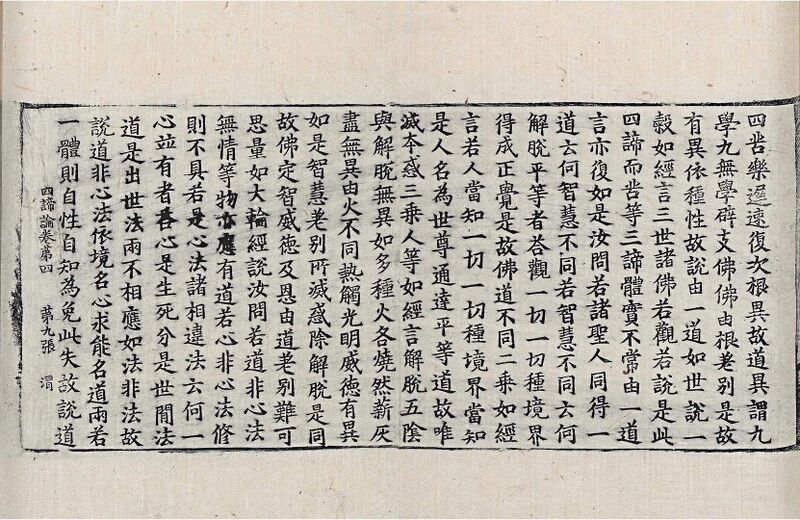 四苦樂遲遠復次根異故道異謂九
學九無學辟支佛佛由根差別是故
有異依種性故說由一道如世說一
穀如經言三世諸佛若觀若說是此
四諦而苦等三諦體實不常由一道
言亦復如是汝問若諸聖人同得一
道云何智慧不同若智慧不同云何
解脫平等者荅觀一切一切種境界
得成正覺是故佛道不同二乘如經
言若人當知一切一切種境界當知
是人名為世尊通達平等道故唯
滅本惑三乘人等如經言解脫五陰
與解脫無異如多種火各燒然薪灰
盡無異由火不同熱觸光明威德有異
如是智慧差別所滅惑除解脫是同
故佛定智威德及恩由道差別難可
思量如大輪經說汝問若道非心法
無情等物亦應有道若心非心法修
則不具若是心法諸相違法云何一
心並有者荅心是生死分是世間法
道是出世法兩不相應如法非法故
說道非心法依境名心求能名道兩若
一體則自性自知為免此失故說道
四諦論卷第四 第九張 渭